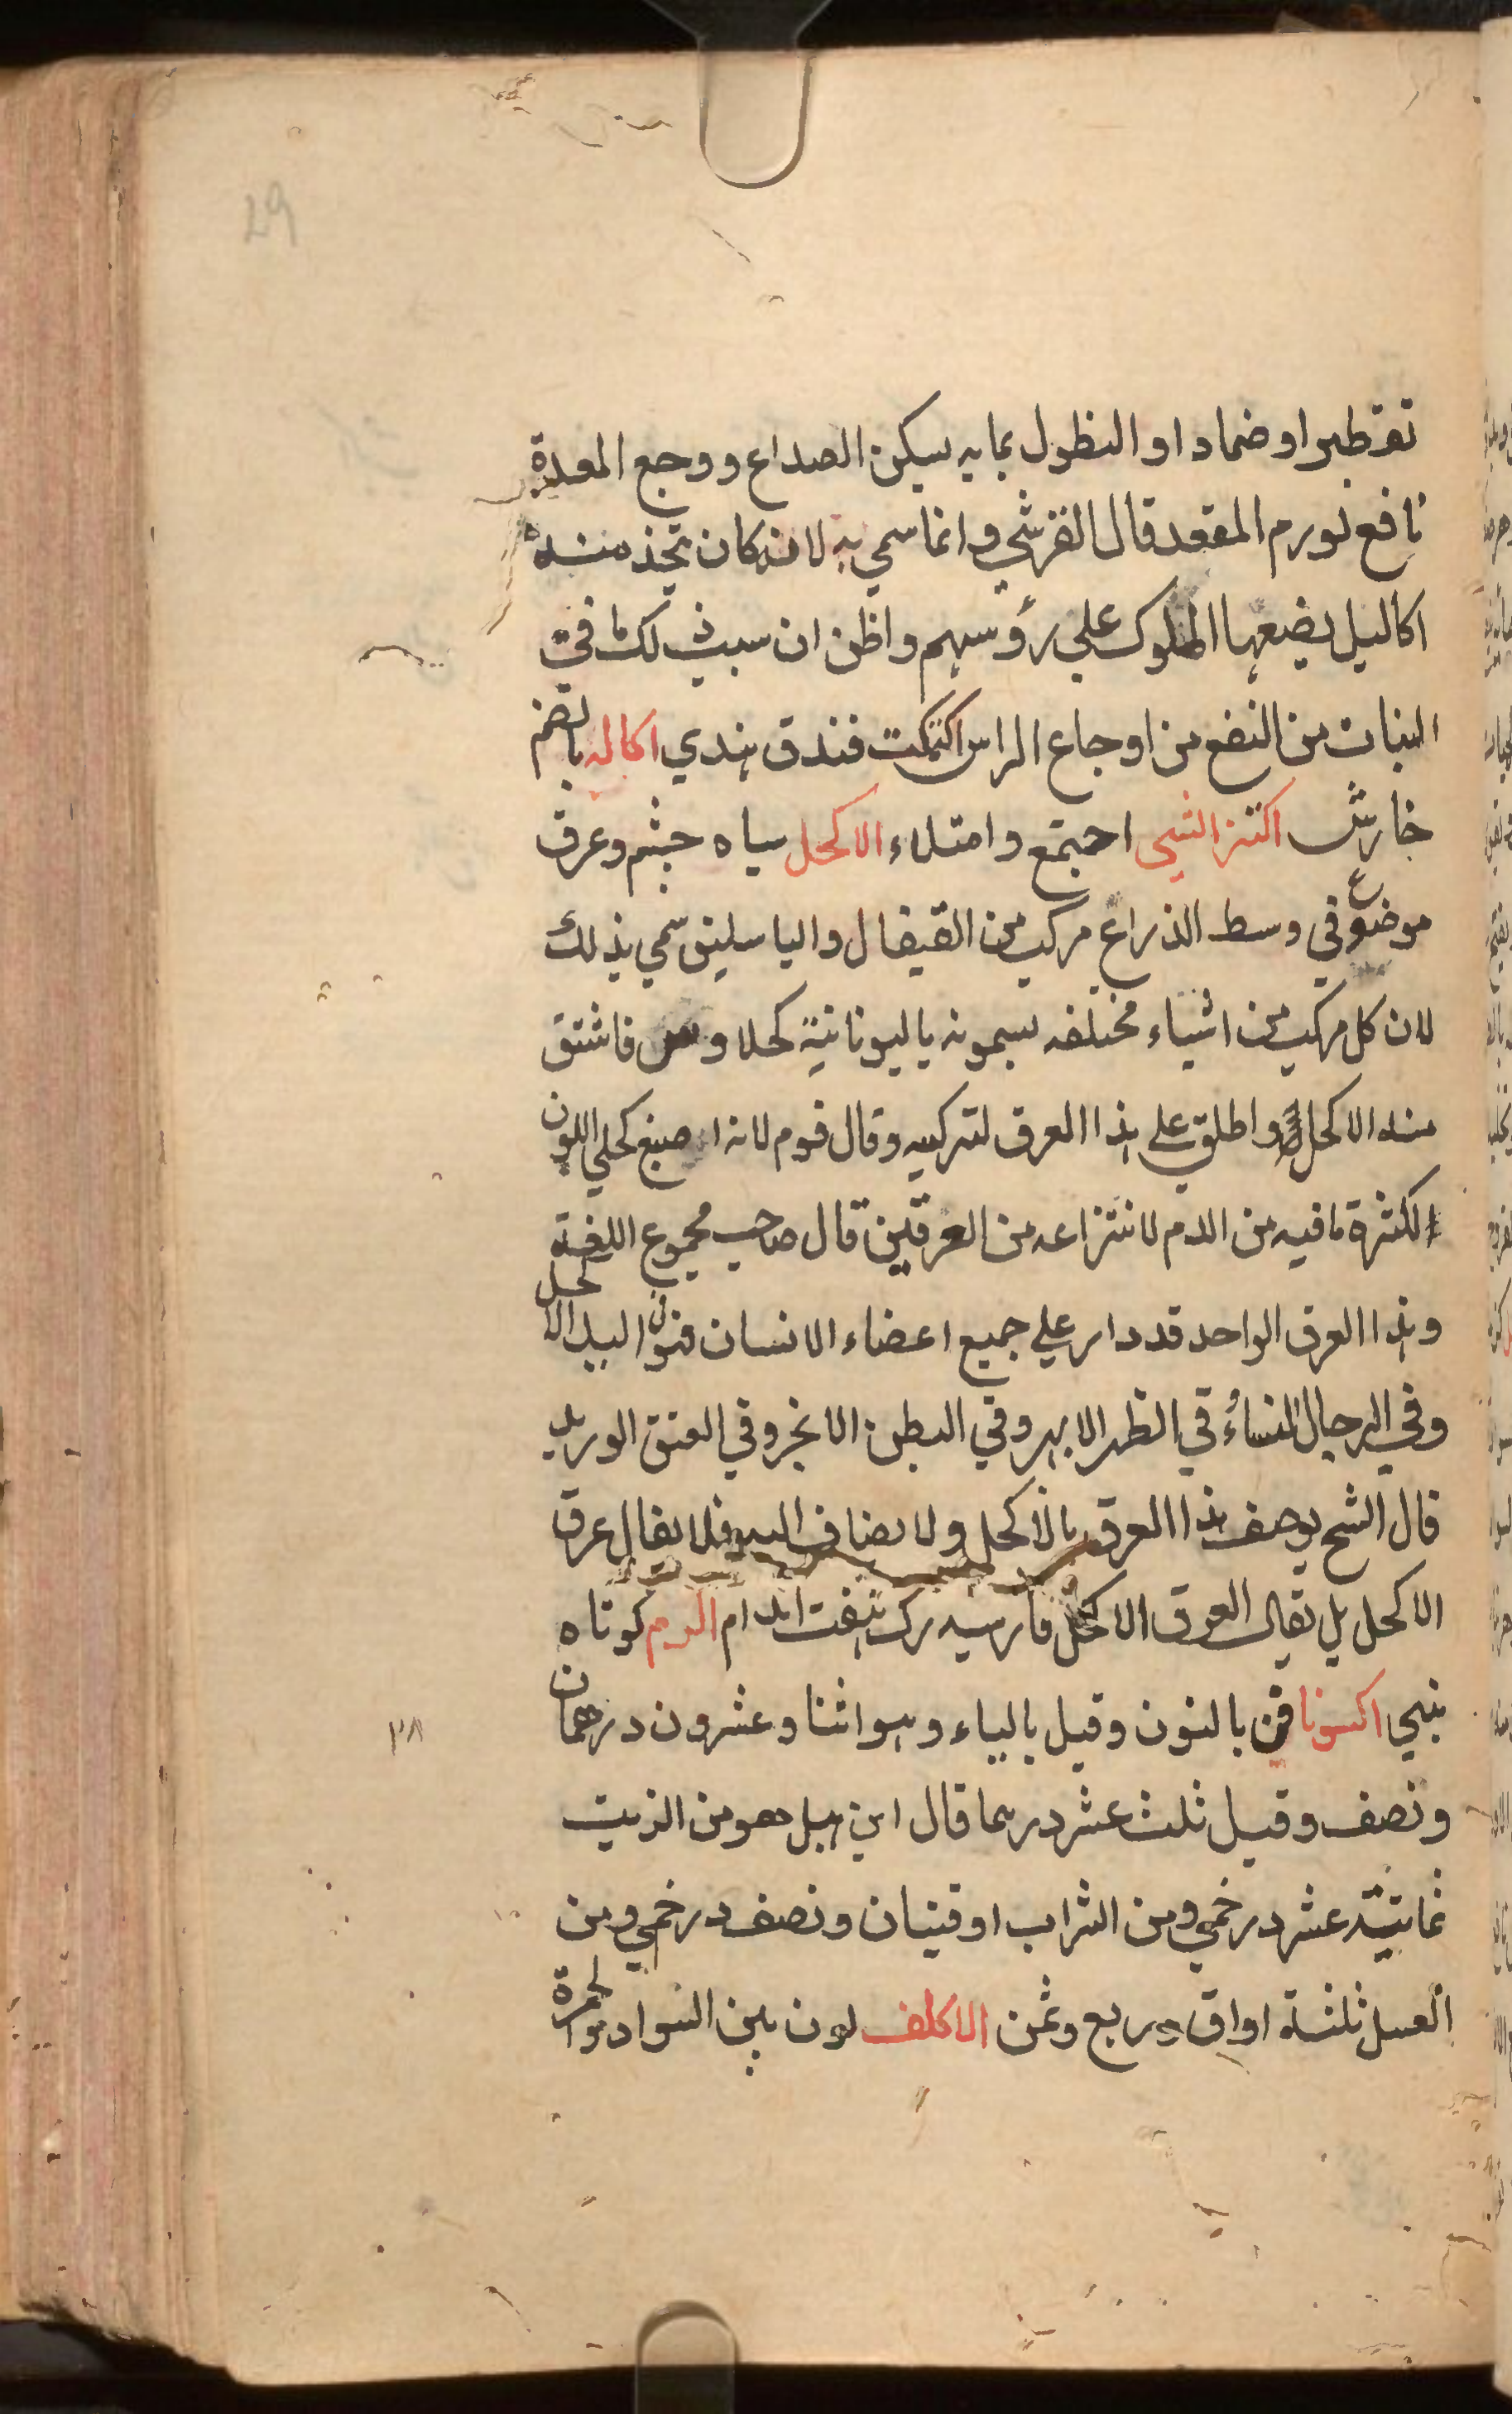 29
تقطير او ضماد او النطول بمايه يسكن الصداع ووجع المعدة
نافع لورم المقعد قال القرشي وانما سمي به لانه كان يتخذ منه
اكاليل يضعها الملوك علي رؤسهم واظن ان سبب ذلك ما في
النبات من النفع من اوجاع الراس اكتمكت فندق هندي اكاله بالضم
خارش اكتنز الشي اجتمع وامتلاء الاكحل سياه چشم وعرق
موضوع في وسط الذراع مركب من القيفال والباسليق سمي بذلك
لان كل مركب من اشياء مختلفه يسمونه باليونانية كحلا فاشتق
منه الاكحل واطلق علي هذا العرق لتركبه وقال قوم لانه اصبغ كحلي اللون
لكثرة ما فيه من الدم لانتزاعه من العرقين قال صاحب مجموع اللغة
وهذا العرق الواحد قد دار علي جميع اعضاء الانسان فهو في اليد الاكحل
وفي الرجال النساء في الظهر الابهر وفي البطن الابحر وفي العنق الوريد
قال الشح يوصف هذا العرق بالاكحل ولا يضاف اليه فلا يقال عرق
الاكحل بل يقال العرق الاكحل فارسيه رك هفت اندام اكزم كوتاه
بيني اكسونافن بالنون وقيل بالياء وهو اثنا وعشرون درهمان
ونصف وقيل ثلث عشر درهما قال ابن هبل هو من الزيت
ثمانية عشر درخمي ومن الشراب اوقيتان ونصف درخمي ومن
العسل ثلثة اواق وربع وثمن الاكلف لون بين السواد والحمرة
٣٨